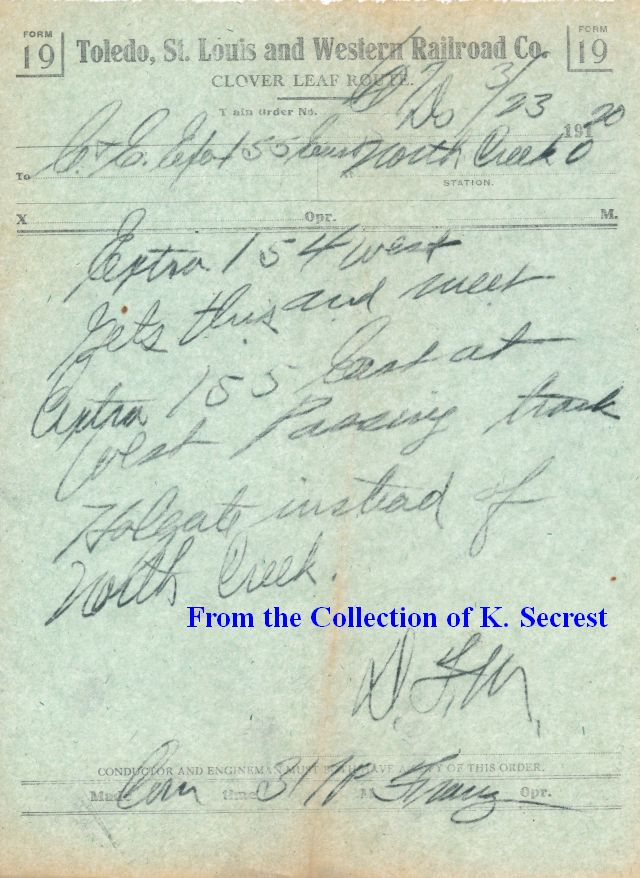 FORM 19
Toledo, St. Louis and Western Railroad Co.
FORM 19
CLOVER LEAF ROUTE.
Train Order No.
Do 3/23 1920
To C. & E. Ex 155 East North Creek O
STATION.
X Opr. M.
Extra 154 West
gets this and meet
Extra 155 East at
West Passing track
Holgate instead of
North Creek.
From the Collection of K. Secrest
CONDUCTOR AND ENGINEMAN MUST BOTH HAVE A COPY OF THIS ORDER.
Made Com time M Opr.